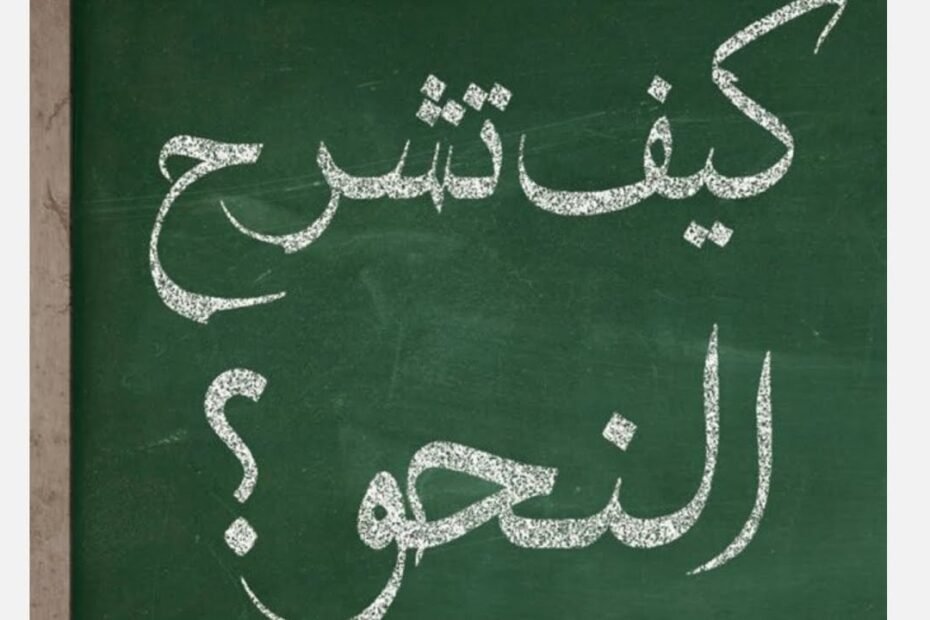 كيف تشرح
النحو ؟